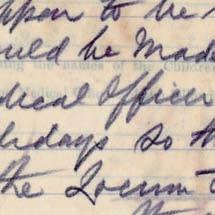 ppen to be
ould be made
ing the names of the Children
dical Officer
lidays so th
the Locum